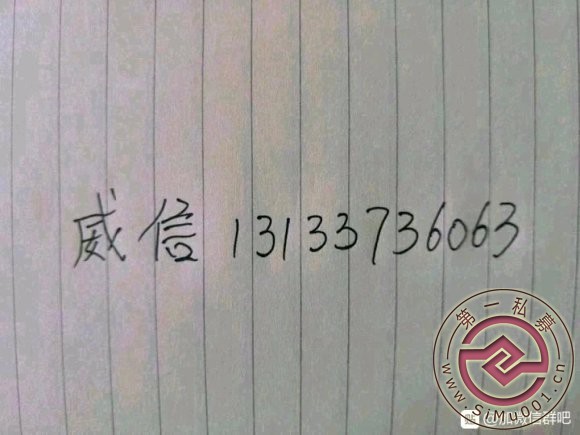 威信 13133736063
第一私募
www.SiMu001.cn
@加微信群吧